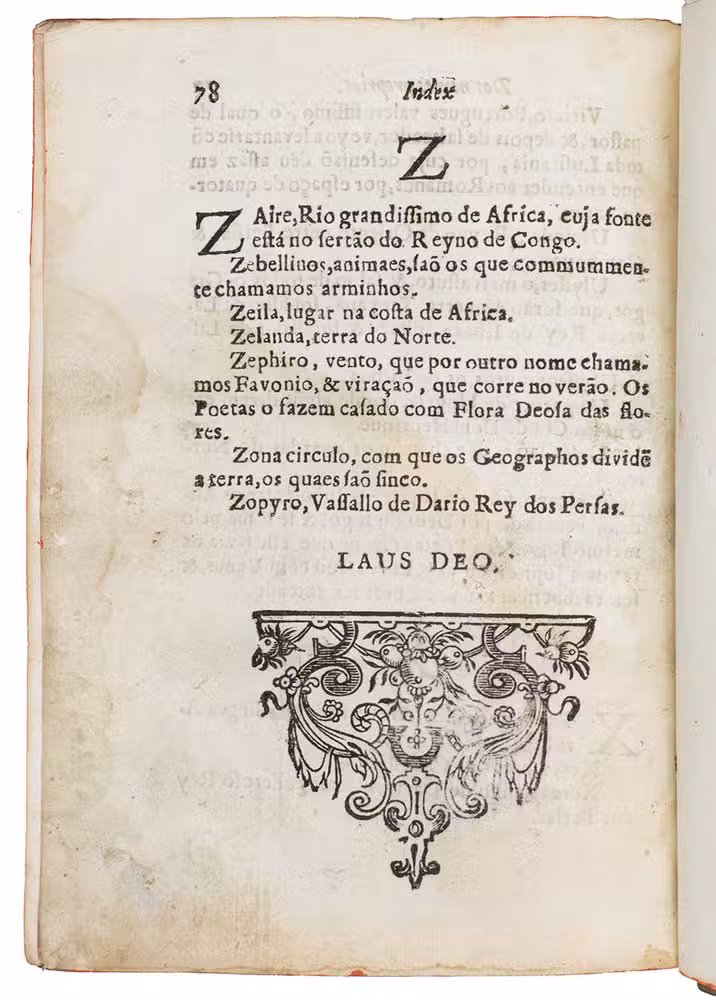 78 Index
Z
ZAire,Rio grandiſſimo de Africa, cuja fonte
eſtá no ſertão do Reyno de Congo.
Zebellinos,animaes,ſaõ os que commummen-
te chamamos arminhos.
Zeila,lugar na coſta de Africa.
Zelanda,terra do Norte.
Zephiro, vento, que por outro nome chama-
mos Favonio, & viraçaõ, que corre no verão. Os
Poetas o fazem caſado com Flora Deoſa das flo-
res.
Zona circulo, com que os Geographos dividẽ
a terra,os quaes ſaõ ſinco.
Zopyro, Vaſſallo de Dario Rey dos Perſas.
LAUS DEO.